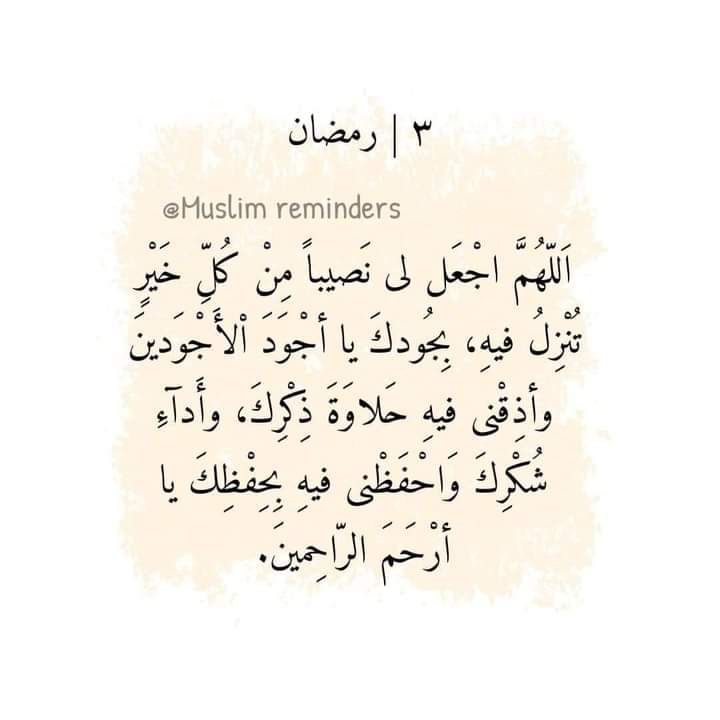 ٣ | رمضان
@Muslim reminders
اَللّهُمَّ اجْعَل لى نَصيباً مِنْ كُلِّ خَيْرٍ
تُنْزِلُ فيهِ، بِجُودكَ يا أجْوَدَ اْلأَجْوَدينَ
وأذِقْنى فيهِ حَلاوَةَ ذِكْرِكَ، وأَدآءِ
شُكْرِكَ وَاحْفَظْنى فيهِ بِحِفْظِكَ يا
أرْحَمَ الرّاحِمينَ.